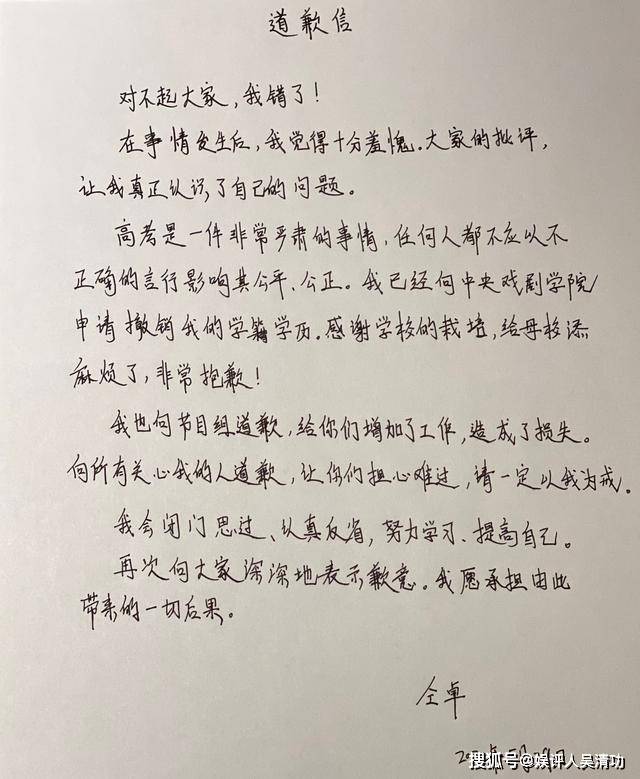 道歉信
对不起大家,我错了!
在事情发生后,我觉得十分羞愧。大家的批评,
让我真正认识了自己的问题。
高考是一件非常严肃的事情,任何人都不应以不
正确的言行影响其公平、公正。我已经向中央戏剧学院
申请撤销我的学籍学历。感谢学校的栽培,给母校添
麻烦了,非常抱歉!
我也向节目组道歉,给你们增加了工作,造成了损失。
向所有关心我的人道歉,让你们担心难过,请一定以我为戒。
我会闭门思过、认真反省,努力学习、提高自己。
再次向大家深深地表示歉意。我愿承担由此
带来的一切后果。
仝卓
搜狐号@娱评人吴清功